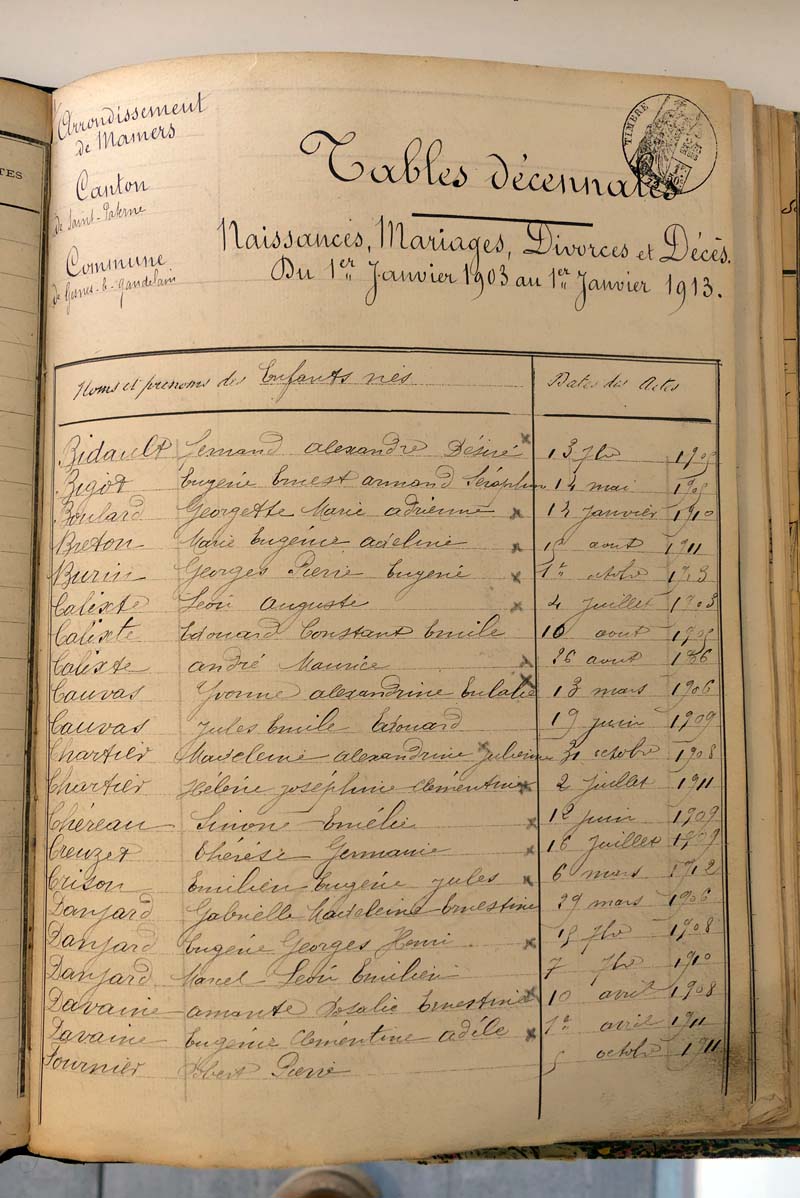 Arrondissement
de Mamers
Canton
de Saint-Paterne
Commune
de Gesnes-le-Gandelain
TIMBRE
Tables décennales
Naissances, Mariages, Divorces et Décès.
Du 1er Janvier 1903 au 1er Janvier 1913.
Noms et prénoms des Enfants nés Dates des Actes
Bidault Fernand alexandre Désiré 13 7bre 1905
Bigot Eugène Ernest armand Séraphin 14 mai 1905
Boulard Georgette Marie adrienne 12 janvier 1910
Breton Marie Eugénie adeline 15 aout 1911
Burin Georges Pierre Eugène 1er octobre 1903
Calixte Léon auguste 4 juillet 1903
Calixte Edouard Constant Emile 10 aout 1905
Calixte andré Maurice 26 aout
Cauvas Yvonne alexandrine Eulalie 13 mars 1906
Cauvas Jules Emile Edouard 19 juin 1909
Chartier Madeleine alexandrine Julienne 31 octobre 1908
Chartier Hélène joséphine Clémentine 2 juillet 1911
Chéreau Simone Emélie 12 juin 1909
Creuzet Thérèse Germanie 16 juillet 1909
Crison Emilien Eugène jules 6 mars 1912
Danjard Gabrielle Madeleine Ernestine 29 mars 1906
Danjard Eugène Georges Henri 15 7bre 1908
Danjard Marcel Léon Emilien 7 7bre 1910
Davaine amante Rosalie Ernestine 10 avril 1908
Davaine Eugénie Clémentine adèle 1er avril 1911
Fournier Robert Pierre 5 octobre 1911